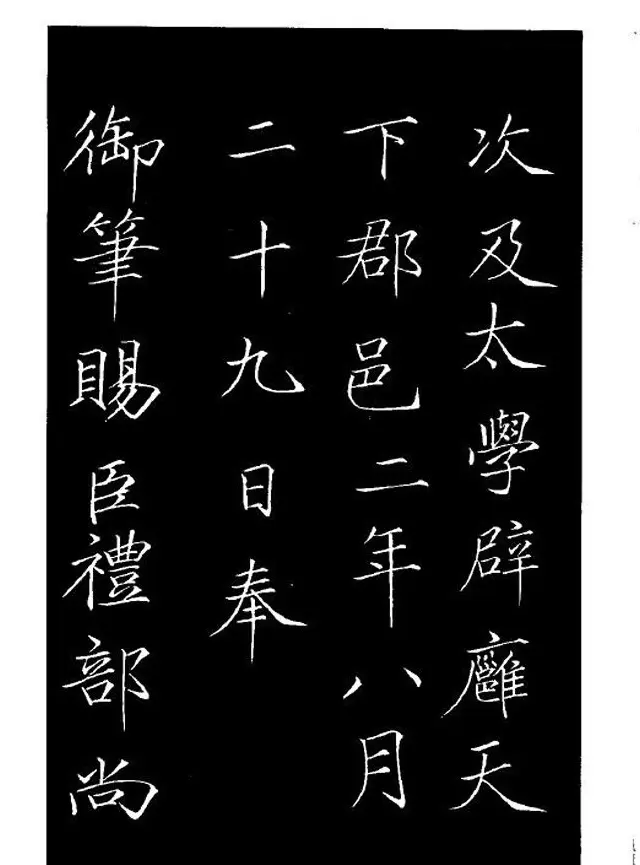 次及太學辟廱天
下郡邑二年八月
二十九日奉
御筆賜臣禮部尚